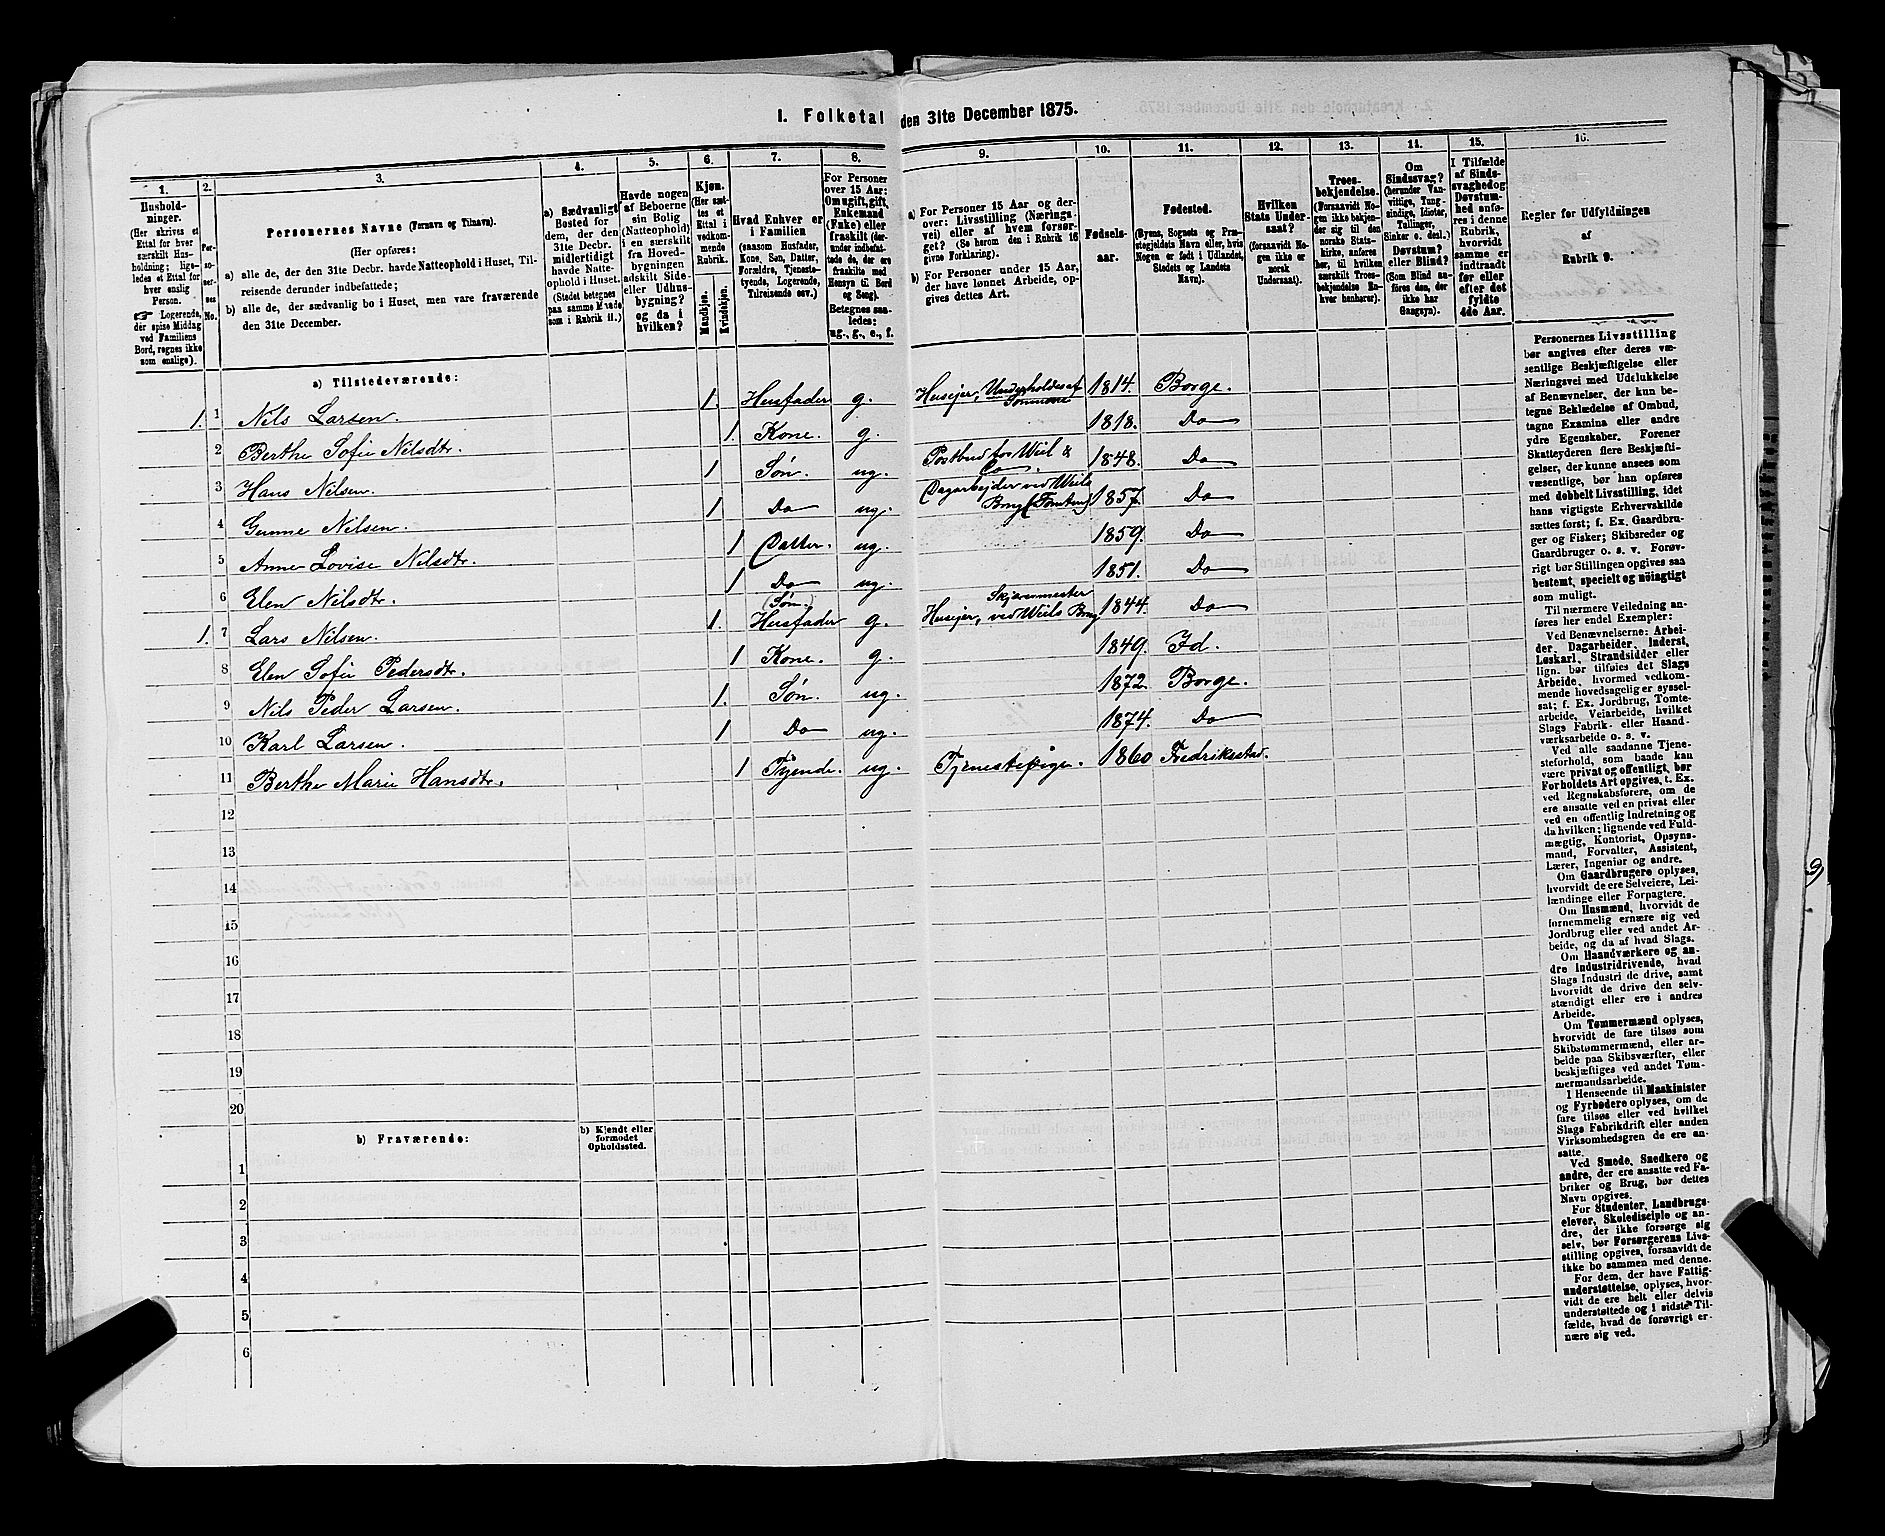 I. Folketal den 31te December 1875.
1. 2. 3. 4. 5. 6. 7. 8. 9. 10. 11. 12. 13. 14. 15. 16.
Husholdninger.
(Her skrives et
Ettal for hver
særskilt Husholdning;
ligeledes et Ettal for
hver enslig
Person.
☞ Logerende,
der spise Middag
ved Familiens
Bord, regnes ikke
som enslige).
Personernes No.
Personernes Navne (Fornavn og Tilnavn).
(Her opføres:
a) alle de, der den 31te Decbr. havde Natteophold i Huset, Tilreisende derunder indbefattede;
b) alle de, der sædvanlig bo i Huset, men vare fraværende
den 31te December.
a) Sædvanligt
Bosted for
dem, der den
31te Decbr.
midlertidigt
havde Natteophold i Huset.
(Stedet betegnes
paa samme Maade
som i Rubrik 11.)
Havde nogen
af Beboerne
sin Bolig
(Natteophold)
i en særskilt
fra Hovedbygningen
adskilt Side-
eller Udhusbygning?
og da i
hvilken?
Kjøn.
(Her sættes et
Ettal i
vedkommende
Rubrik.
Mandkjøn.
Kvindekjøn.
Hvad Enhver er
i Familien
(saasom Husfader,
Kone, Søn, Datter,
Forældre, Tjenestetyende, Logerende,
Tilreisende osv.)
For Personer
over 15 Aar:
Om ugift, gift,
Enkemand
(Enke) eller
fraskilt (derunder indbefattede de, der ere
fraskilte med
Hensyn til Bord
og Seng).
Betegnes saaledes:
ug., g., e., f.
a) For Personer 15 Aar og derover: Livsstilling (Næringsvei) eller af hvem forsørget? (Se herom den i Rubrik 16
givne Forklaring).
b) For Personer under 15 Aar,
der have lønnet Arbeide, opgives dettes Art.
Fødselsaar.
Fødested.
(Byens, Sognets og Præstegjeldets Navn eller, hvis
Nogen er født i Udlandet,
Stedets og Landets
Navn).
Hvilken
Stats Undersaat?
(forsaavidt Nogen ikke er
norsk
Undersaat).
Troesbekjendelse.
(Forsaavidt Nogen ikke bekjender sig til den
norske Statskirke, anføres
her, til hvilken
særskilt Troesbekjendelse Enhver henhører).
Om
Sindssvag?
(herunder Vanvittige, Tungsindige, Idioter,
Tullinger,
Sinker o. desl.)
Døvstum?
eller Blind?
(Som Blind anføres den, der
ikke har
Gangsyn).
I Tilfælde
af Sindssvaghed og
Døvstumhed anføres i denne
Rubrik,
hvorvidt
samme er
indtraadt
før eller
efter det
fyldte
4de Aar.
Regler for Udfyldningen
af
Rubrik 9.
a) Tilstedeværende:
1. 1 Nils Larsen 1. Husfader g. Husejer, Underholdes af Sønnerne 1814. Borge.
2 Berthe Sofie Nilsdtr. 1 Kone. g. 1818. Do
3 Hans Nilsen. 1 Søn. ug. Postbud for Wiel & Co. 1848. Do
4 Gunne Nilsen. 1 Do ug. Dagarbejder ved Wiels Brug 1857. Do
5 Anne Lovise Nilsdtr. 1 Datter. ug. 1859. Do
6 Elen Nilsdtr. 1 Do ug. 1851. Do
1. 7 Lars Nilsen. 1. (Søn) Husfader g. Husejer, Skjæremester ved Wiels Brug 1844. Do
8 Elen Sofie Pedersdtr. 1 Kone. g. 1849. Id.
9 Nils Peder Larsen. 1. Søn. ug. 1872. Borge.
10 Karl Larsen. 1 Do ug. 1874. Do
11 Berthe Marie Hansdtr. 1 Tyende. ug. Tjenestepige. 1860 Fredriksstad.
12
13
14
15
16
17
18
19
20
b) Fraværende:
b) Kjendt eller
formodet
Opholdssted.
1
2
3
4
5
6
Personernes Livsstilling
bør angives efter deres væsentlige Beskjæftigelse eller
Næringsvei med Udelukkelse
af Benævnelser, der kun betegne Beklædelse af Ombud,
tagne Examina eller andre
ydre Egenskaber. Forener
Skatteyderen flere Beskjæftigelser, der kunne ansees som
væsentlige, bør han opføres
med dobbelt Livsstilling, idet
hans vigtigste Erhvervskilde
sættes først; f. Ex. Gaardbruger og Fisker; Skibsreder og
Gaardbruger o. s. v. Forøvrigt bør Stillingen opgives saa
bestemt, specielt og nöiagtigt
som muligt.
Til nærmere Veiledning anføres her endel Exempler:
Ved Benævnelserne: Arbeider, Dagarbeider, Inderst,
Løskarl, Strandsidder eller
lign. bør tilføies det Slags
Arbeide, hvormed vedkommende hovedsagelig er sysselsat; f. Ex. Jordbrug, Tomtearbeide, Veiarbeide, hvilket
Slags Fabrik- eller Haandværksarbeide o. s. v.
Ved alle saadanne Tjenesteforhold, som baade kan
være privat og offentligt, bør
Forholdets Art opgives, t. Ex.
ved Regnskabsførere, om de
ere ansatte ved en privat eller
ved en offentlig Indretning og
da hvilken; lignende ved Fuldmægtig, Kontorist, Opsynsmand, Forvalter, Assistent,
Lærer, Ingeniør og andre.
Om Gaardbrugere oplyses,
hvorvidt de ere Selveiere, Leilændinge eller Forpagtere.
Om Husmænd, hvorvidt de
fornemmelig ernære sig ved
Jordbrug eller ved andet Arbeide, og da af hvad Slags.
Om Haandværkere og andre Industridrivende, hvad
Slags Industri de drive, samt
hvorvidt de drive den selvstændigt eller ere i andres
Arbeide.
Om Tømmermænd oplyses,
hvorvidt de fare tilsøs som
Skibstømmermænd, eller arbeide paa Skibsværfter, eller
beskjæftiges ved andet Tømmermandsarbeide.
I Henseende til Maskinister
og Fyrbødere oplyses, om de
fare tilsøs eller ved hvilket
Slags Fabrikdrift eller anden
Virksomhedsgren de ere ansatte.
Ved Smede, Snedkere og
andre, der ere ansatte ved Fabriker og Brug, bør dettes
Navn opgives.
For Studenter, Landbrugselever, Skoledisciple og andre, der ikke forsørge sig
selv, bør Forsørgerens Livsstilling opgives, forsaavidt de
ikke bo sammen med denne.
For dem, der have Fattigunderstøttelse, oplyses, hvorvidt de ere helt eller delvis
understøttede og i sidste Tilfælde, hvad de forøvrigt ernære sig ved.